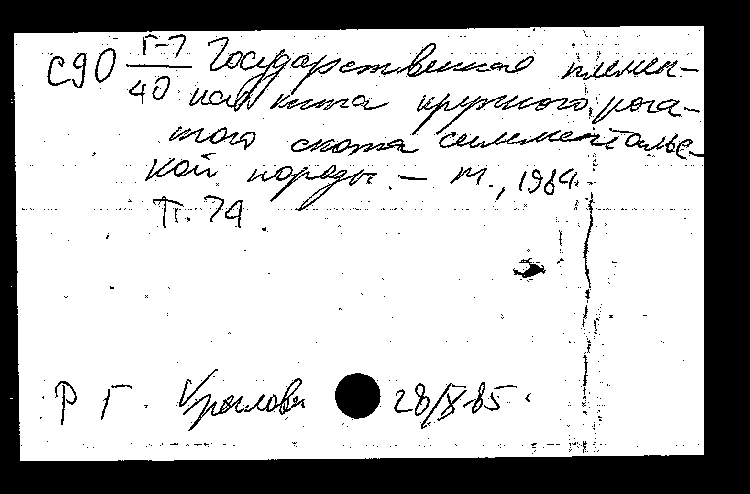 С90 Г-7/40 Государственная племен-
ная книга крупного рога-
того скота симментальс-
кой породы. – М., 1984.
Т. 74.
Р Г. 28/X-85.